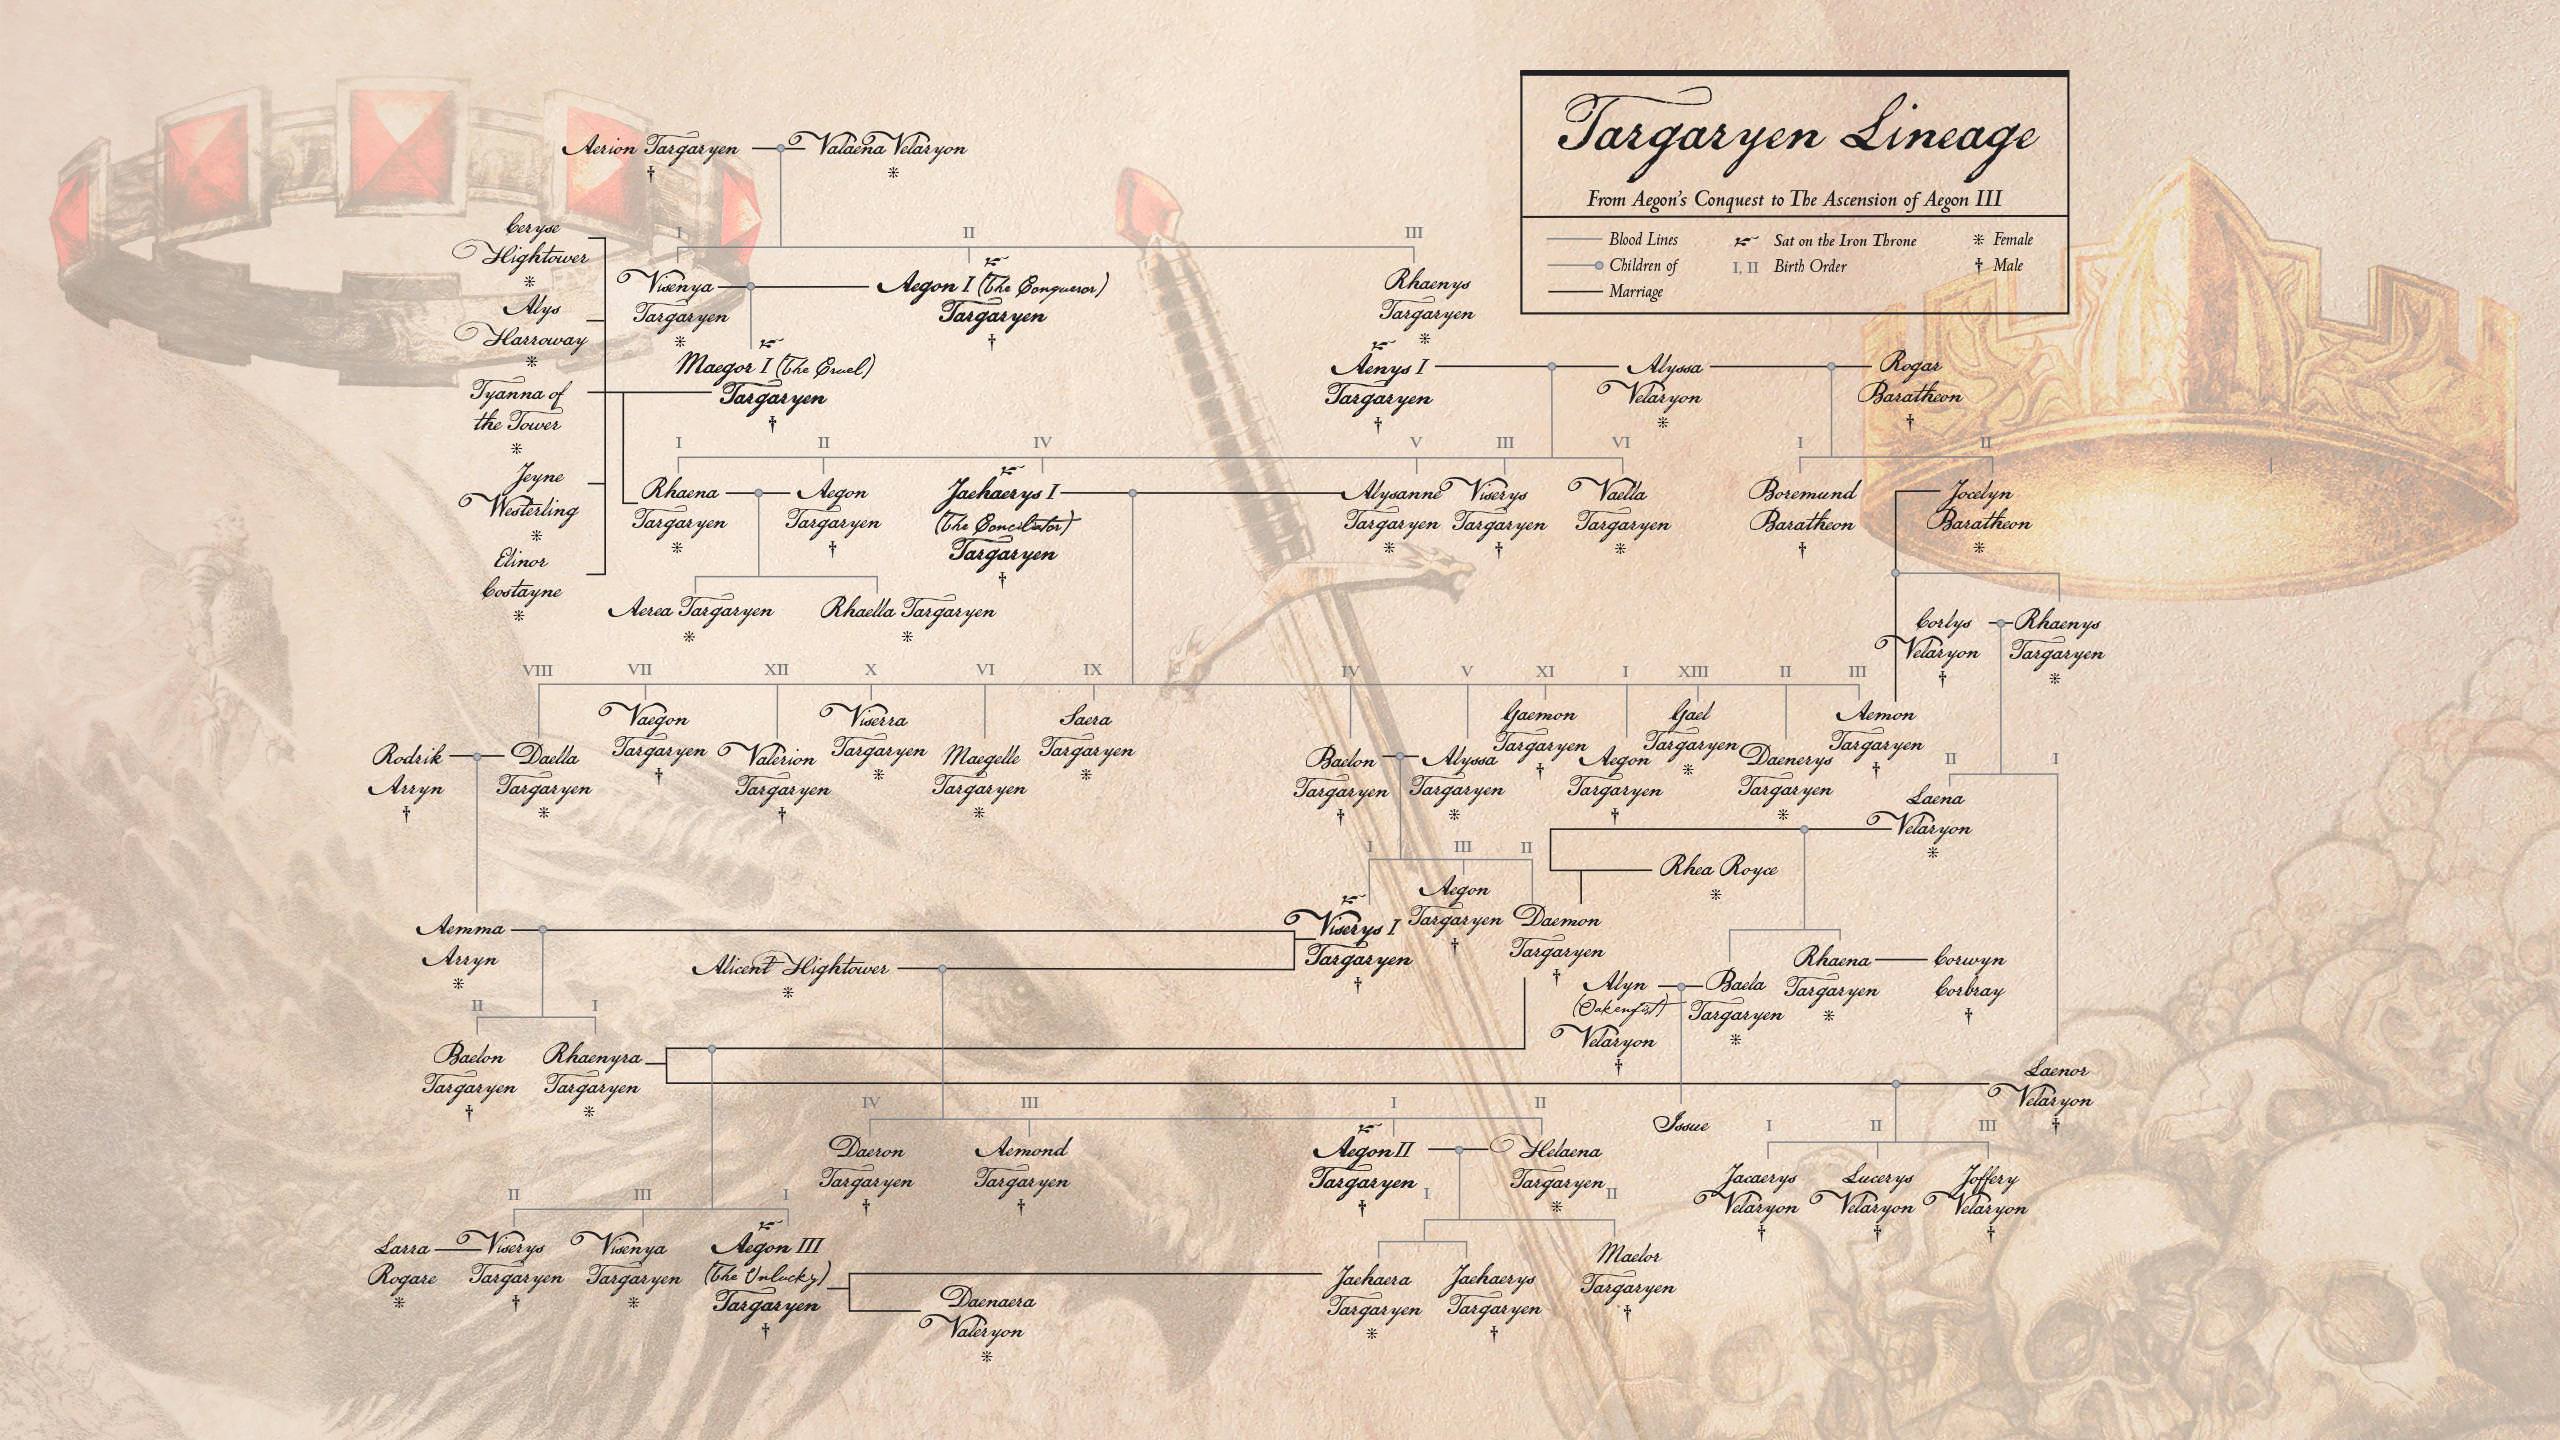 Targaryen Lineage
From Aegon's Conquest to The Ascension of Aegon III
Blood Lines
Children of
Marriage
Sat on the Iron Throne
I, II Birth Order
※ Female
† Male
Aerion Targaryen
†
Valaena Velaryon
※
I
II
III
Ceryse
Hightower
※
Alys
Harroway
※
Tyanna of
the Tower
※
Jeyne
Westerling
※
Elinor
Costayne
※
Visenya
Targaryen
※
Aegon I (The Conqueror)
Targaryen
†
Rhaenys
Targaryen
※
Maegor I (The Cruel)
Targaryen
†
Aenys I
Targaryen
†
Alyssa
Velaryon
※
Rogar
Baratheon
†
I
II
IV
V
III
VI
I
II
Rhaena
Targaryen
※
Aegon
Targaryen
†
Jaehaerys I
(The Conciliator)
Targaryen
†
Alysanne
Targaryen
※
Viserys
Targaryen
†
Vaella
Targaryen
※
Boremund
Baratheon
†
Jocelyn
Baratheon
※
Aerea Targaryen
※
Rhaella Targaryen
※
Corlys
Velaryon
†
Rhaenys
Targaryen
※
VIII
VII
XII
X
VI
IX
IV
V
XI
I
XIII
II
III
Rodrik
Arryn
†
Daella
Targaryen
※
Vaegon
Targaryen
†
Valerion
Targaryen
†
Viserra
Targaryen
※
Maegelle
Targaryen
※
Saera
Targaryen
※
Baelon
Targaryen
†
Alyssa
Targaryen
※
Gaemon
Targaryen
†
Aegon
Targaryen
†
Gael
Targaryen
※
Daenerys
Targaryen
※
Aemon
Targaryen
†
II
I
Laena
Velaryon
※
I
III
II
Rhea Royce
※
Aemma
Arryn
※
Alicent Hightower
※
Viserys I
Targaryen
†
Aegon
Targaryen
†
Daemon
Targaryen
†
Alyn
(Oakenfist)
Velaryon
†
Baela
Targaryen
※
Rhaena
Targaryen
※
Corwyn
Corbray
†
II
I
Baelon
Targaryen
†
Rhaenyra
Targaryen
※
Laenor
Velaryon
†
IV
III
I
II
Issue
I
II
III
Daeron
Targaryen
†
Aemond
Targaryen
†
Aegon II
Targaryen
†
Helaena
Targaryen
※
Jacaerys
Velaryon
†
Lucerys
Velaryon
†
Joffery
Velaryon
†
II
III
I
I
II
Larra
Rogare
※
Viserys
Targaryen
†
Visenya
Targaryen
※
Aegon III
(The Unlucky)
Targaryen
†
Daenaera
Valeryon
※
Jaehaera
Targaryen
※
Jaehaerys
Targaryen
†
Maelor
Targaryen
†